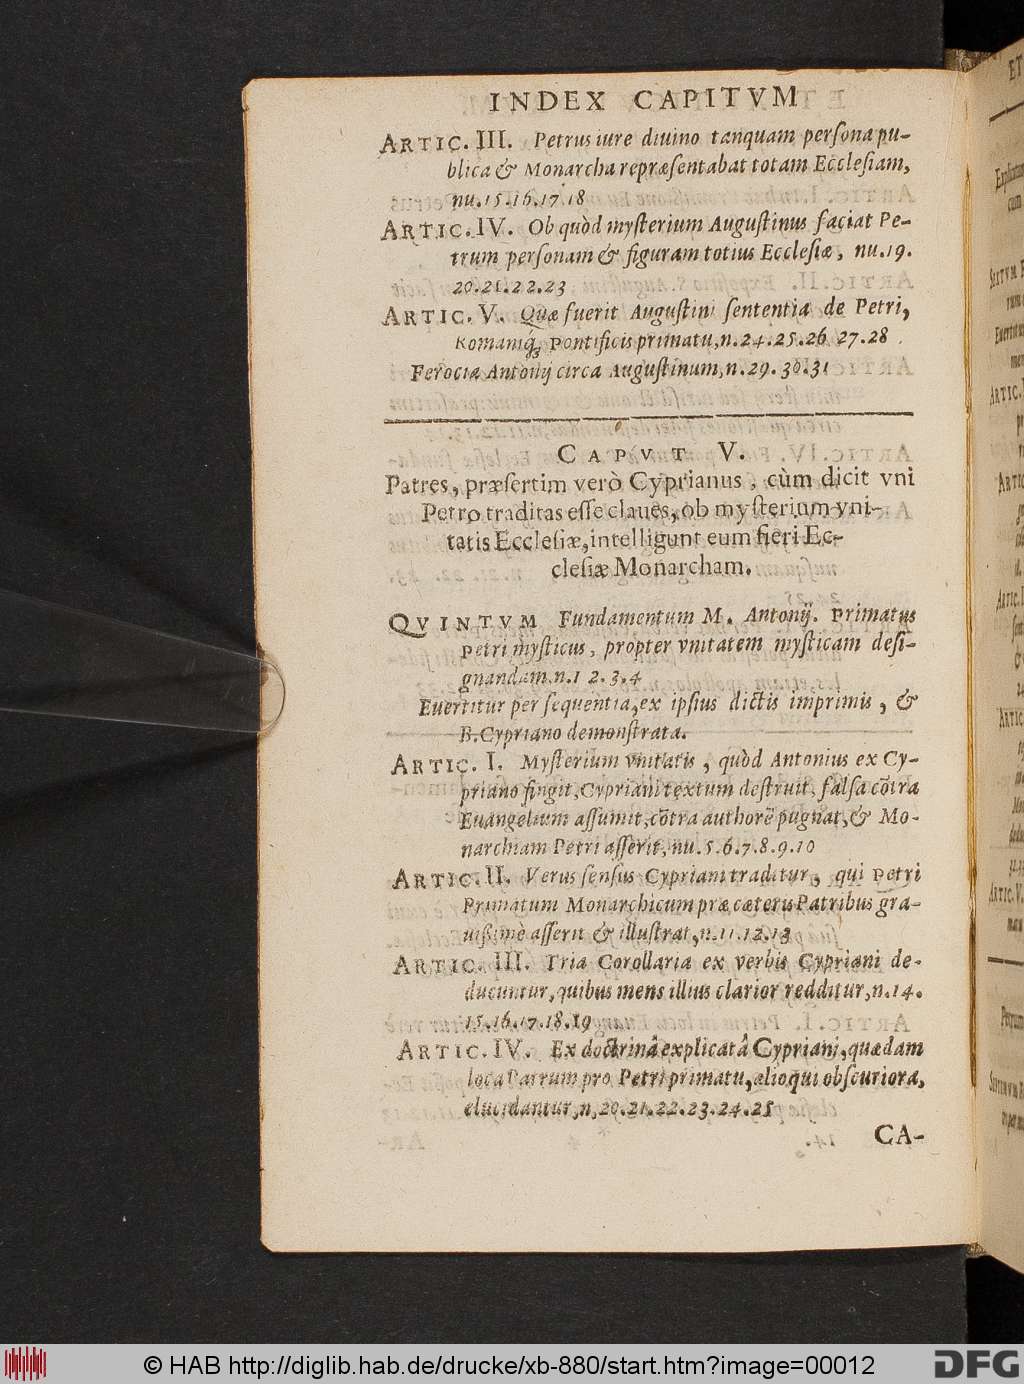 INDEX CAPITVM
ARTIC. III. Petrus iure diuino tanquam perſona pu-
blica & Monarcha repræſentabat totam Eccleſiam,
nu. 15. 16. 17. 18
ARTIC. IV. Ob quòd myſterium Auguſtinus faciat Pe-
trum perſonam & figuram totius Eccleſiæ, nu. 19.
20. 21. 22. 23
ARTIC. V. Quæ fuerit Auguſtini ſententia de Petri,
Romaniq́; Pontificis primatu, n. 24. 25. 26 27. 28
Ferocia Antonij circa Auguſtinum, n. 29. 30. 31
CAPVT V.
Patres, præſertim verò Cyprianus, cùm dicit vni
Petro traditas eſſe claues, ob myſterium vni-
tatis Eccleſiæ, intelligunt eum fieri Ec-
cleſiæ Monarcham.
QVINTVM Fundamentum M. Antonij. Primatus
Petri myſticus, propter vnitatem myſticam deſi-
gnandam. n. 1 2. 3. 4
Euertitur per ſequentia, ex ipſius dictis imprimis, &
B. Cypriano demonſtrata.
ARTIC. I. Myſterium vnitatis, quòd Antonius ex Cy-
priano fingit, Cypriani textum deſtruit, falſa cōtra
Euangelium aſſumit, cōtra authorē pugnat, & Mo-
narchiam Petri aſſerit, nu. 5. 6. 7. 8. 9. 10
ARTIC. II. Verus ſenſus Cypriani traditur, qui Petri
Primatum Monarchicum præ cæteris Patribus gra-
uiſſimè aſſerit & illuſtrat, n. 11. 12. 13
ARTIC. III. Tria Corollaria ex verbis Cypriani de-
ducuntur, quibus mens illius clarior redditur, n. 14.
15. 16. 17. 18. 19
ARTIC. IV. Ex doctrinâ explicatâ Cypriani, quædam
loca Patrum pro Petri primatu, alioqui obſcuriora,
elucidantur, n, 20. 21. 22. 23. 24. 25
CA-
© HAB http://diglib.hab.de/drucke/xb-880/start.htm?image=00012
DFG